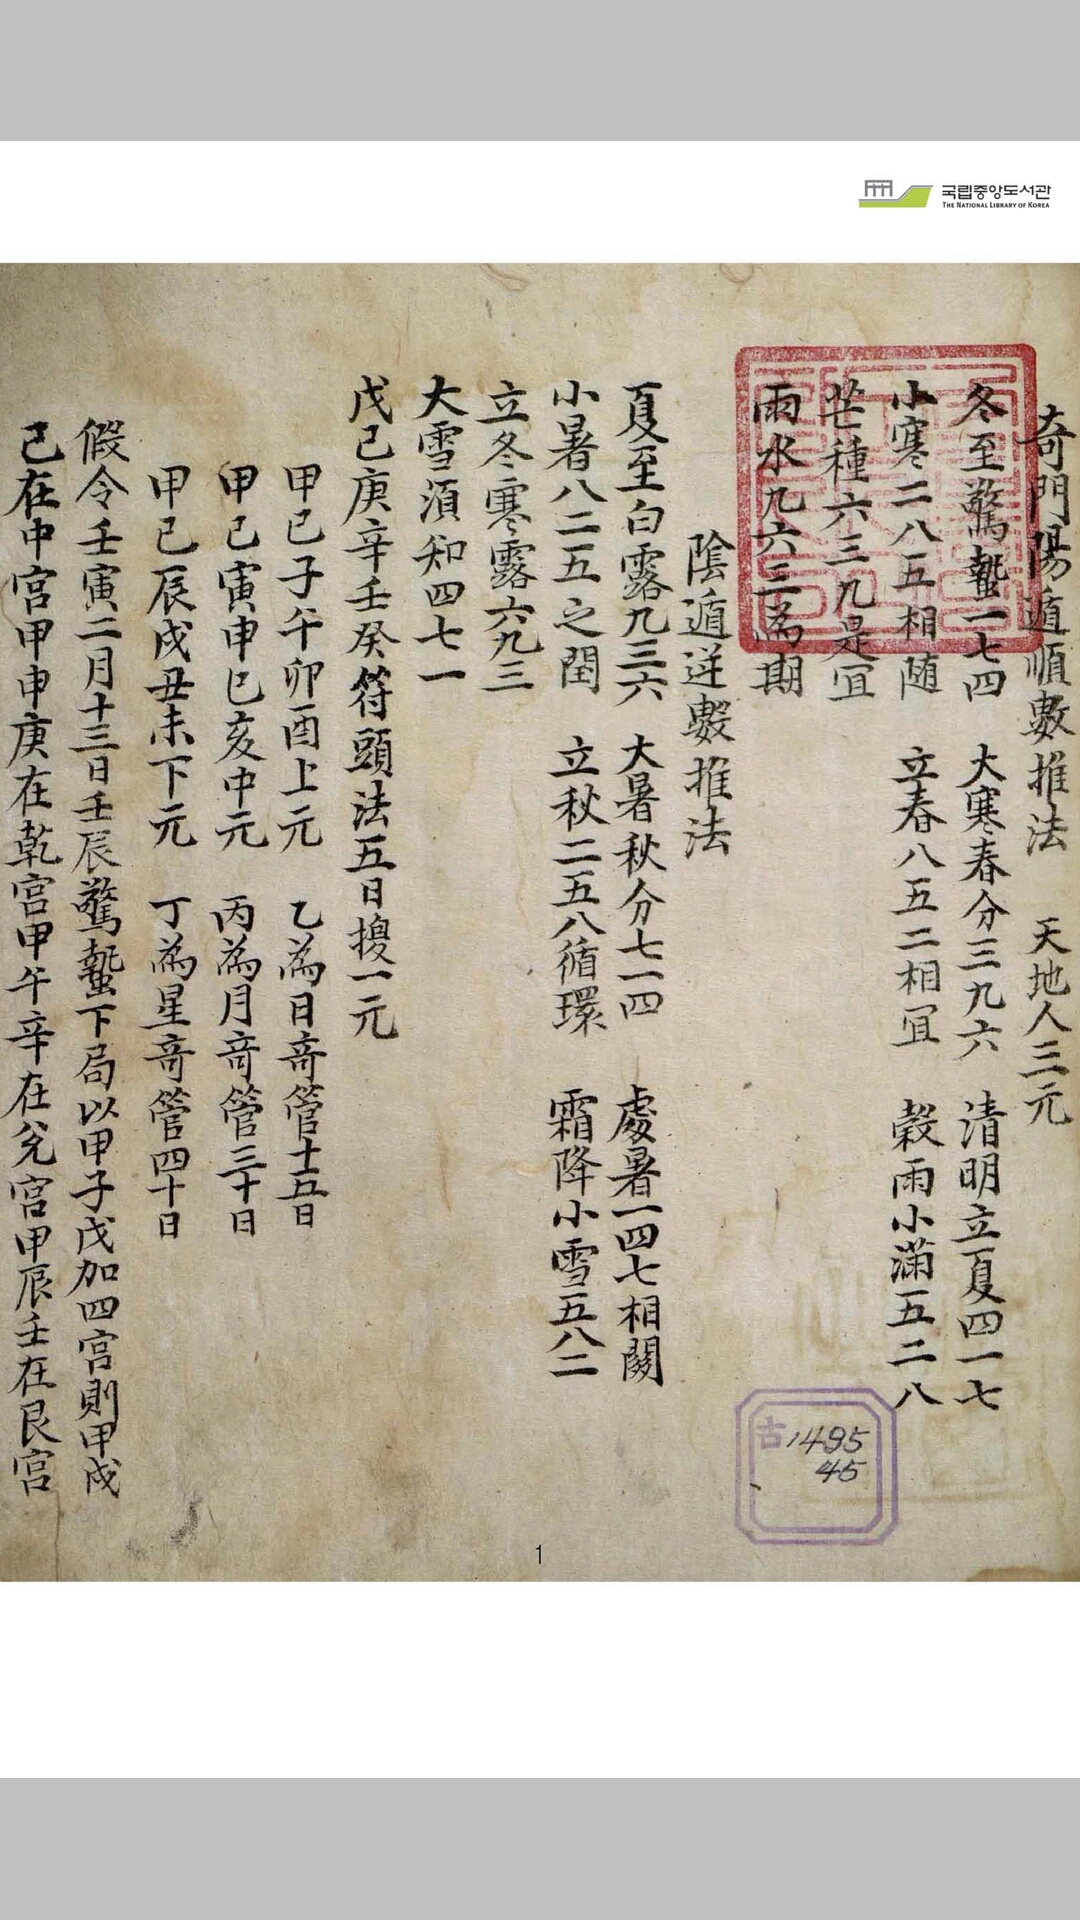 국립중앙도서관
THE NATIONAL LIBRARY OF KOREA
奇門陽遁順數推法 天地人三元
冬至驚蟄一七四 大寒春分三九六 清明立夏四一七
小寒二八五相随 立春八五二相冝 穀雨小滿五二八
芒種六三九是冝
雨水九六三為期
陰遁逆數推法
夏至白露九三六 大暑秋分七一四 處暑一四七相關
小暑八二五之間 立秋二五八循環 霜降小雪五八二
立冬寒露六九三
大雪須知四七一
戊己庚辛壬癸符頭法五日換一元
甲己子午卯酉上元 乙為日奇管十五日
甲己寅申巳亥中元 丙為月奇管三十日
甲己辰戌丑未下元 丁為星奇管四十日
假令壬寅二月十三日壬辰驚蟄下局以甲子戊加四宮則甲戌
己在中宮甲申庚在乾宮甲午辛在兌宮甲辰壬在艮宮
古1495
45
1